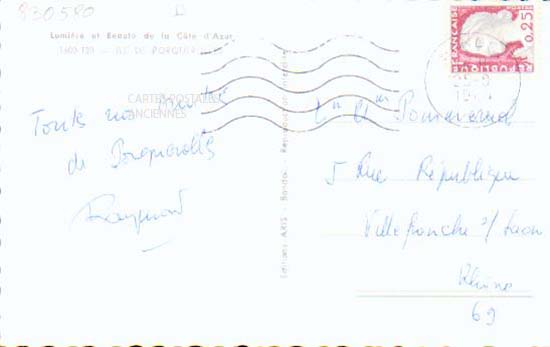 830580
Lumière et Beauté de la Côte d'Azur
ILE DE PORQUEROLLES
CARTES POSTALES
ANCIENNES
Toutes nos amitiés
de Porquerolles
Raymond
Editions ARIS - Bandol - Reproduction interdite
REPUBLIQUE FRANÇAISE
POSTES
0,25
Pommerel
5 Rue République
Villefranche s/ Saon
Rhône
69